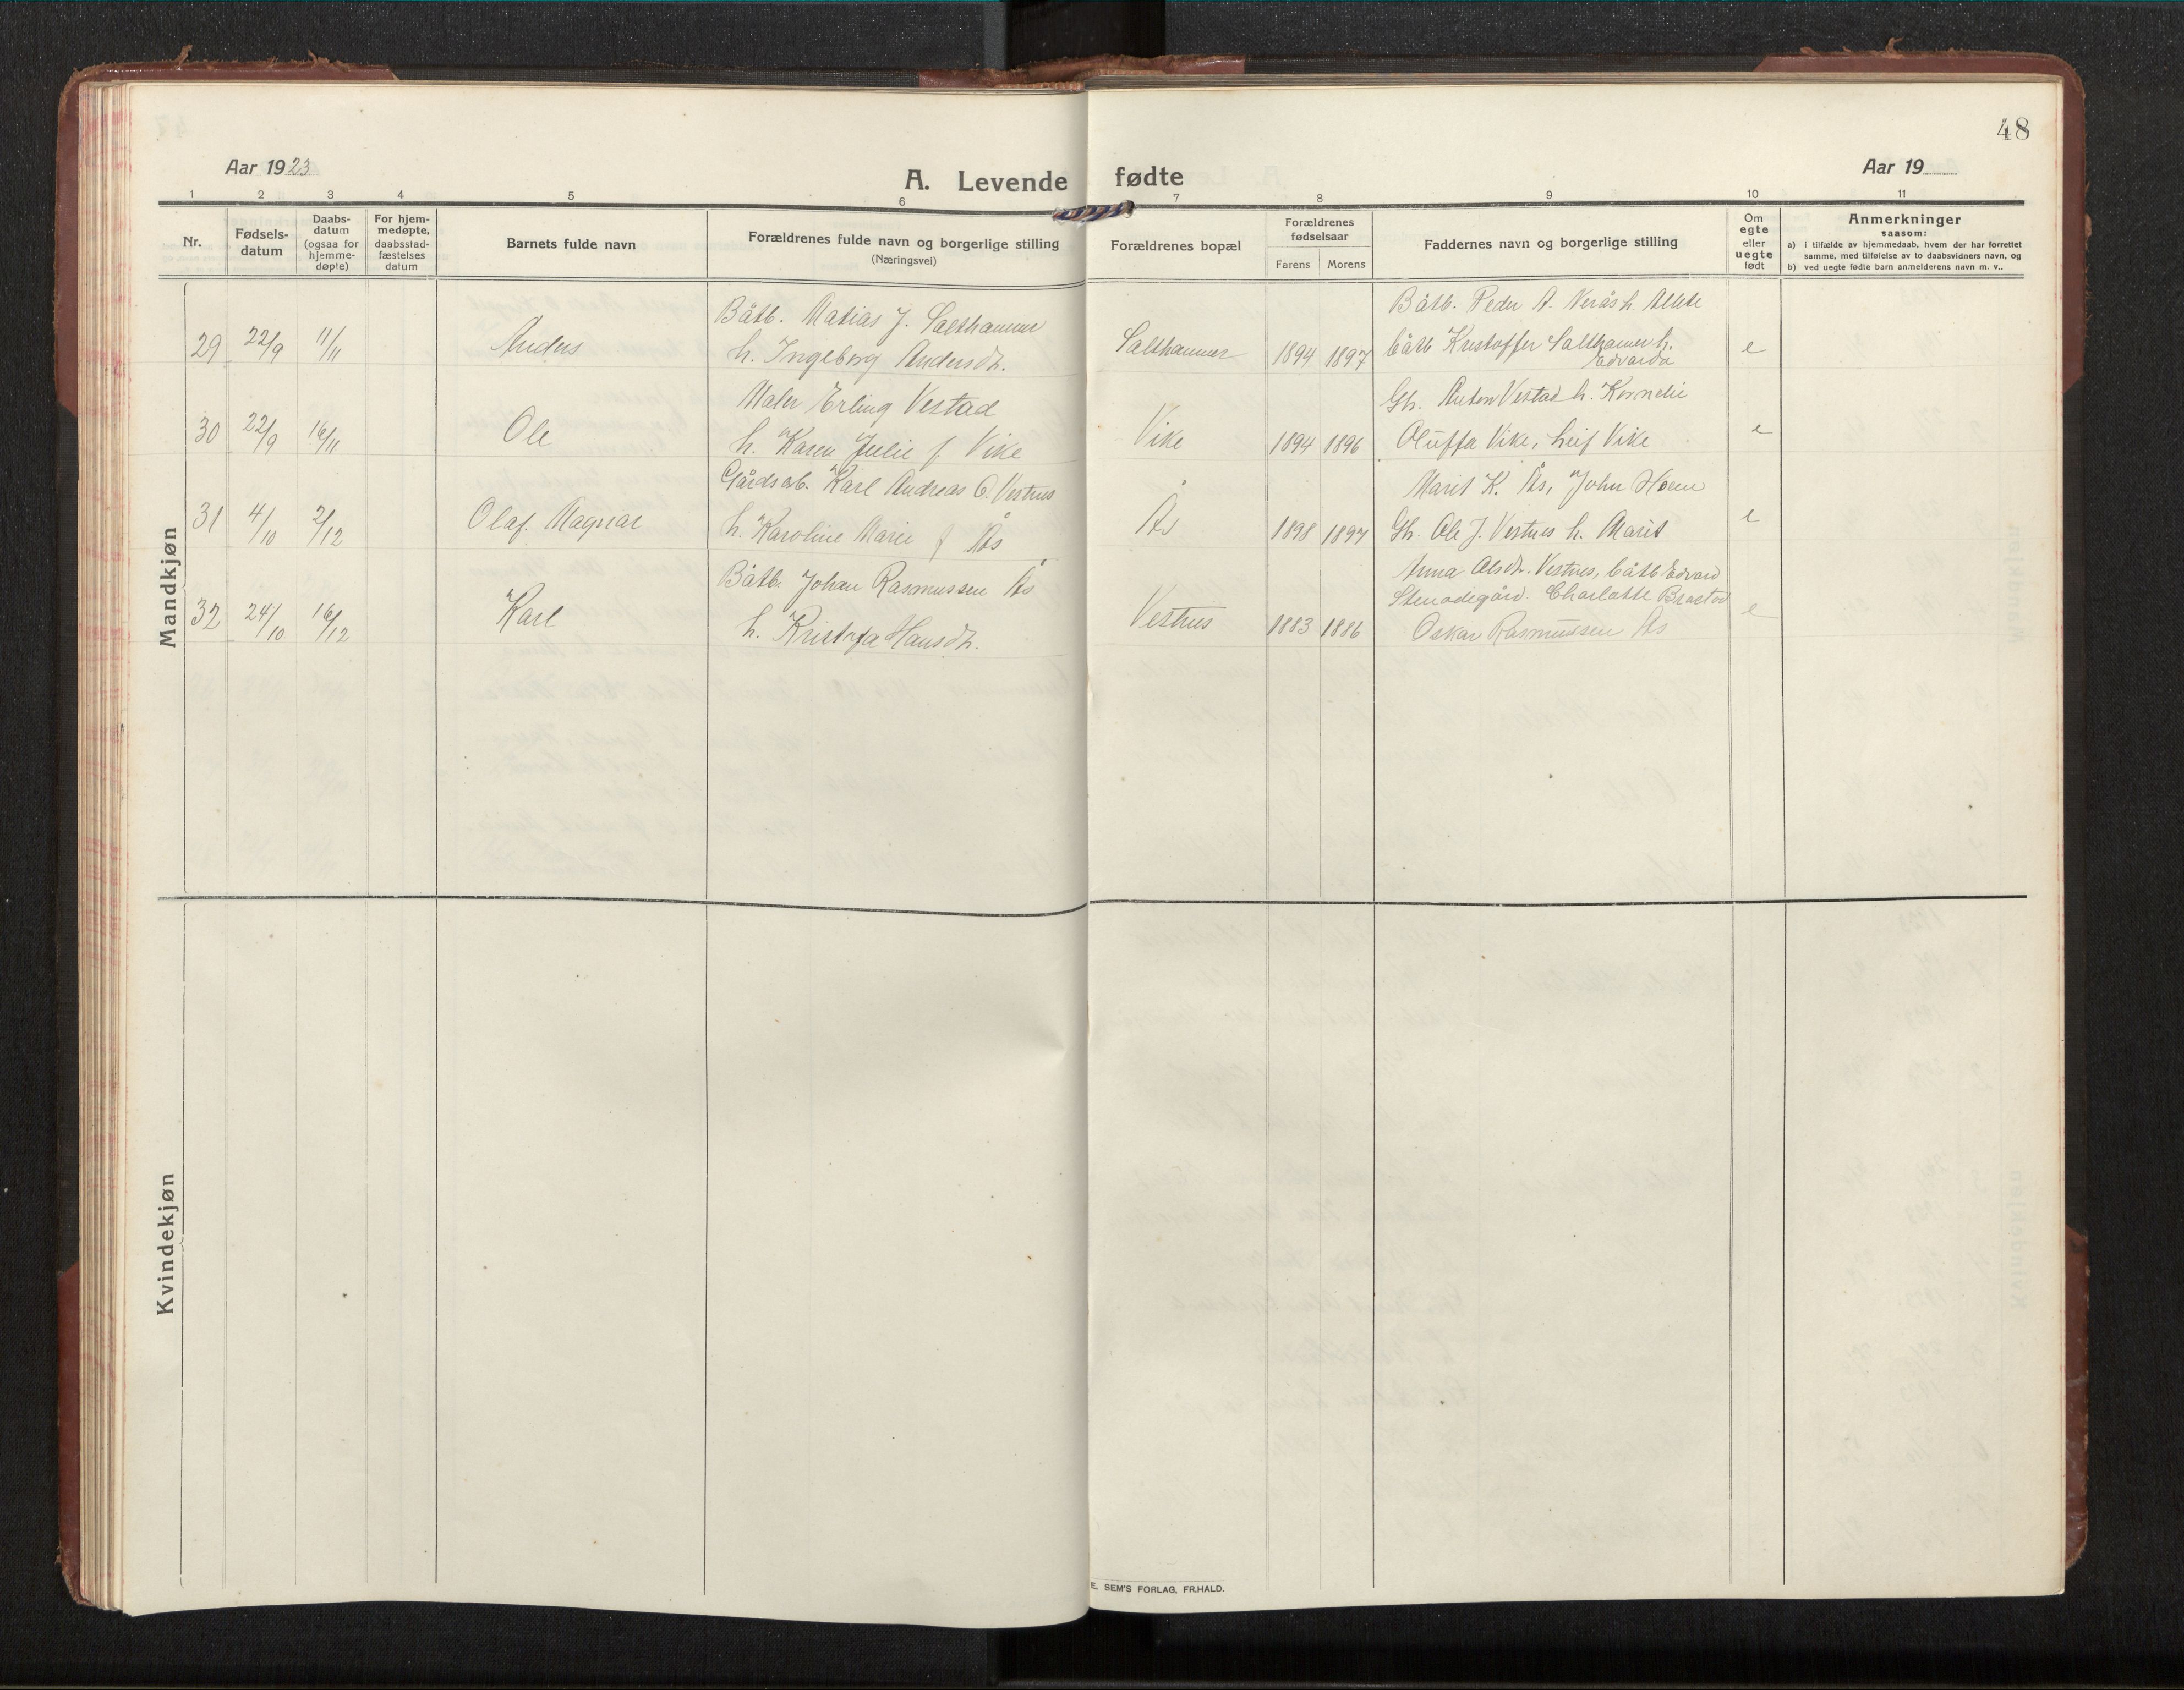 48
Aar 1923
A. Levende fødte
Aar 19
1 2 3 4 5 6 7 8 9 10 11
Nr.
Fødsels-
datum
Daabs-
datum
(ogsaa for
hjemme-
døpte)
For hjem-
medøpte,
daabsstad-
fæstelses
datum
Barnets fulde navn
Forældrenes fulde navn og borgerlige stilling
(Næringsvei)
Forældrenes bopæl
Forældrenes
fødselsaar
Farens Morens
Faddernes navn og borgerlige stilling
Om
egte
eller
uegte
født
Anmerkninger
saasom:
a) i tilfælde av hjemmedaab, hvem der har forrettet
samme, med tilføielse av to daabsvidners navn, og
b) ved uegte fødte barn anmelderens navn m. v..
Mandkjøn
29 22/9 11/11 Anders
Båtb. Matias J. Salthammer
h. Ingeborg Andersdt.
Salthammer 1894 1897
Båtb. Peder A. Nerås h.
båtb Kristoffer Salthamer h.
Edvarda
e
30 22/9 16/11 Ole
Maler Erling Vestad
h. Karen Julie f. Vike
Vike 1894 1896
Gb. Anton Vestad h. Kornelie
Oluffa Vike, Leif Vike
e
31 4/10 2/12 Olaf Magnar
Gårdsarb. Karl Andreas O. Vestnes
h. Karoline Marie f Ås
Ås 1898 1897
Marit K. Ås, John Høem
Gb. Ole J. Vestnes h. Marit
e
32 24/10 16/12 Karl
Båtb. Johan Rasmussen Ås
h. Kristofa Hansdt.
Vestnes 1883 1886
Anna Olsdt. Vestnes, båtb Edvard
Stenødegård. Charlotte Brastad
Oskar Rasmussen Ås
e
Kvindekjøn
E. SEM'S FORLAG, FR.HALD.